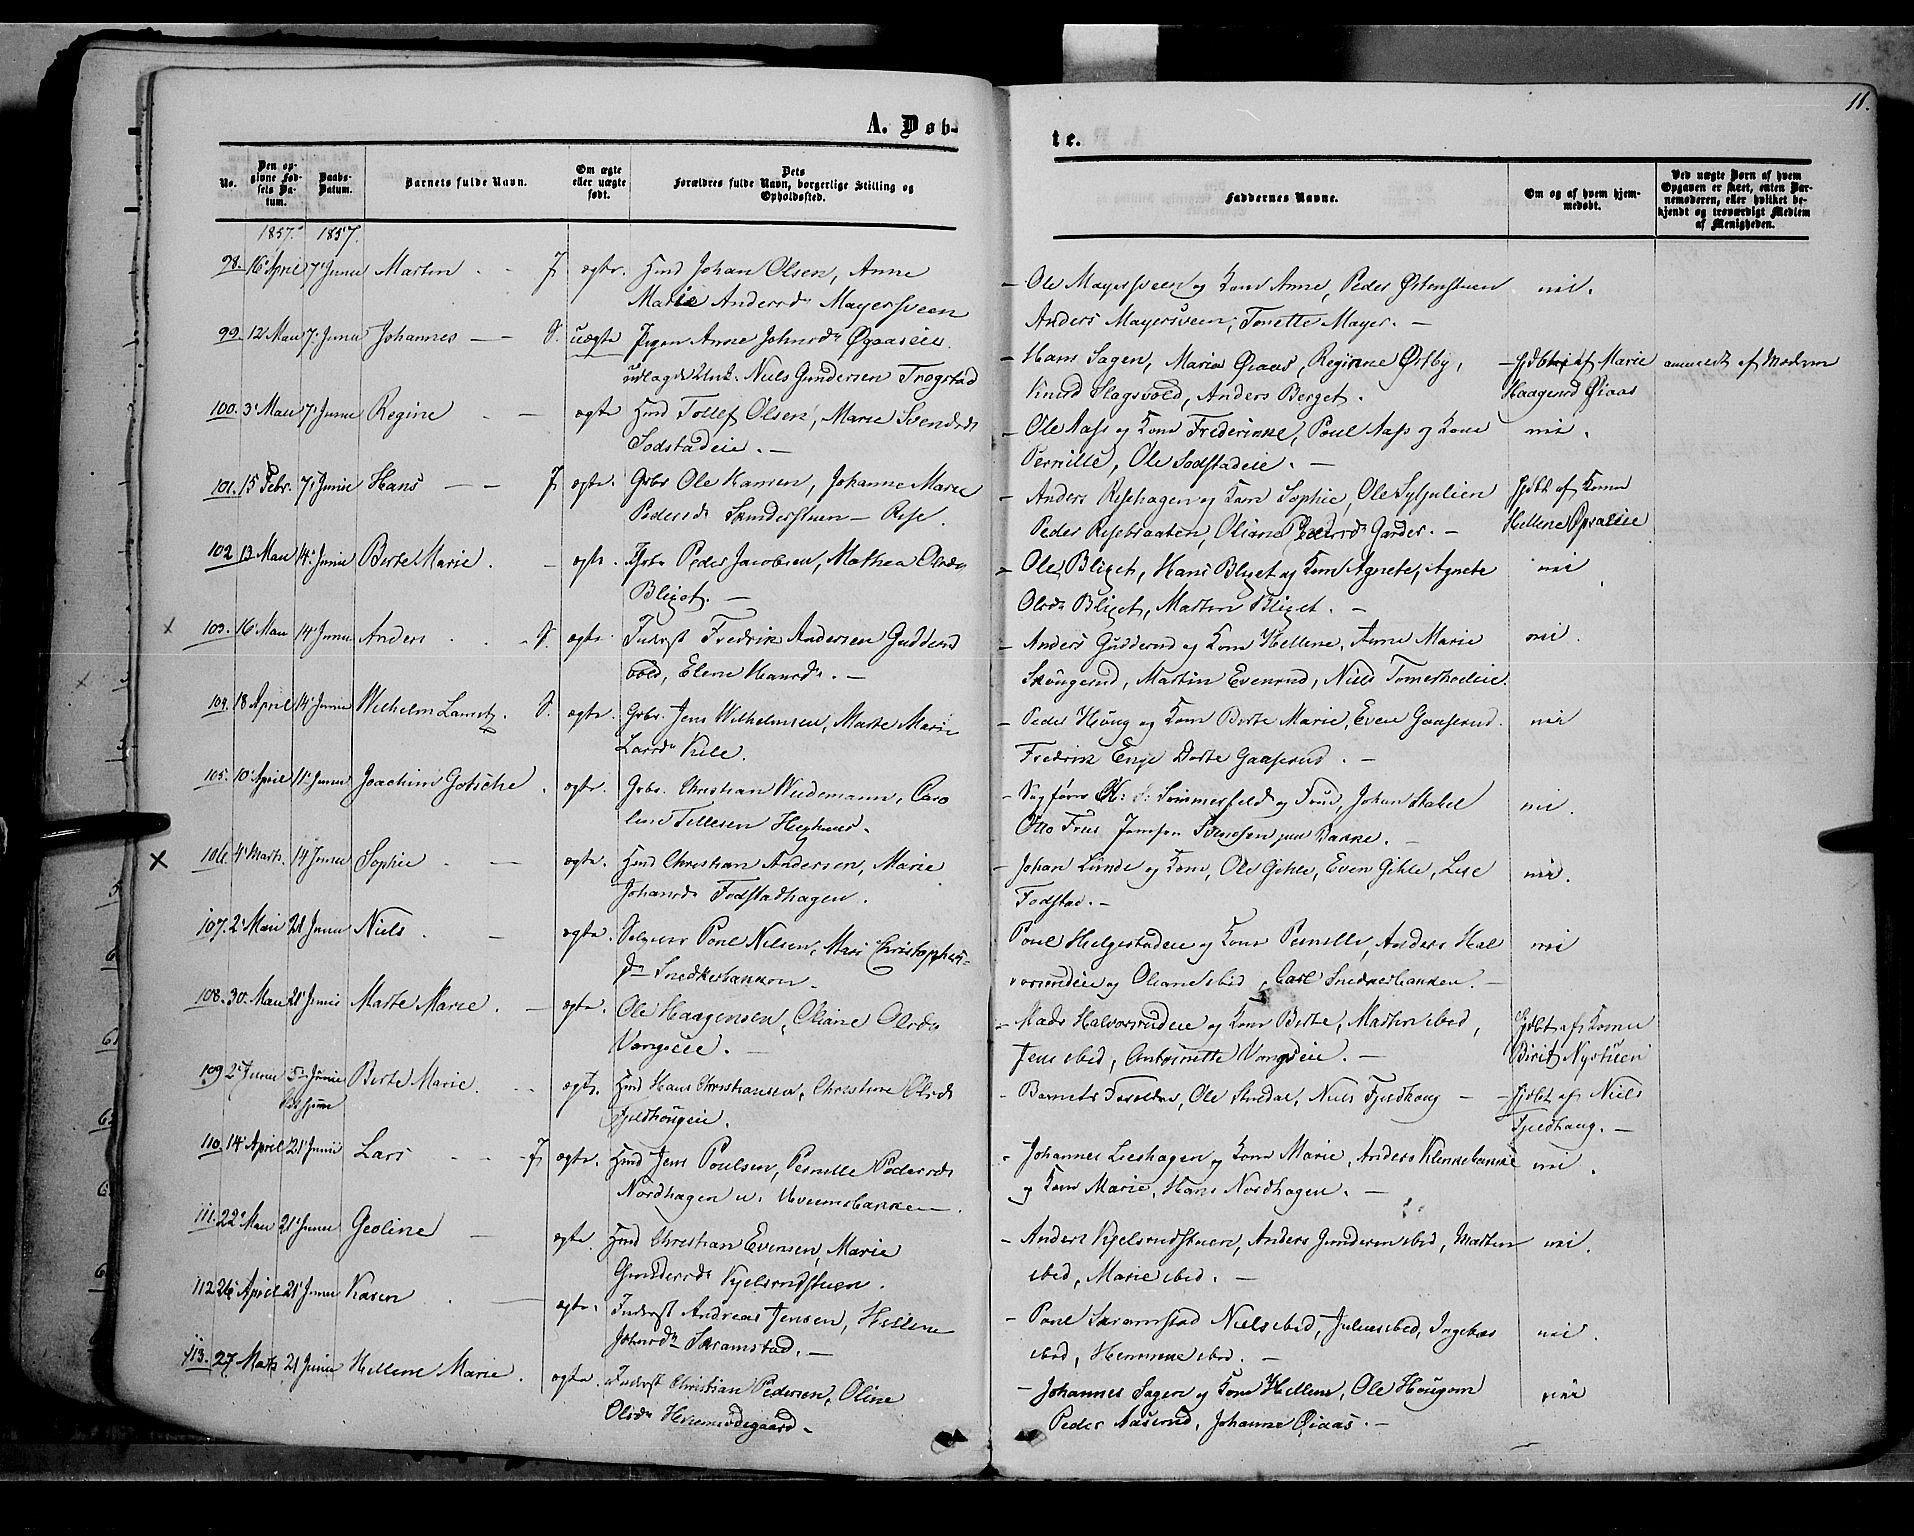 11.
A. Døb-
te.
No.
Den opgivne Fødsels Datum.
Daabs-Datum.
Barnets fulde Navn.
Om ægte eller uægte født.
Dets Forældres fulde Navn, borgerlige Stilling og Opholdssted.
Faddernes Navne.
Om og af hvem hjemmedøbt.
Ved uægte Børn af hvem Opgaven er skeet, enten Barnemoderen, eller hvilket bekjendt og troværdigt Medlem af Menigheden.
1857. 1857.
98. 16 April 7 Junii Martin - - ægte. Hmd Johan Olsen, Anne
Marie Andersd. Mayersveen
Ole Mayersveen og Kone Anne, Peder Østensteen nei.
Anders Mayersveen, Tonette Mayer. -
99. 12 Maii 7 Junii Johannes - - uægte Pigen Anne Johnsd. Øgaaseie.
udlagde Unk. Niels Gundersen Trogstad
Hans Sagen, Marie Øiaas, Regine Østby, - hjdbt af Marie anmeldt af Moderen
Knud Slagsvold, Anders Berget. Haagensd Øiaas
100. 3 Maii 7 Junii Regine - - ægte Hmd Tollef Olsen, Marie Svendsd.
Sodstadeie. -
- Ole Aass og Kone Frederikke, Poul Aass og Kone nei.
Pernille, Ole Sodstadeie. -
101. 15 Febr. 7 Junii Hans - - ægte. Grbr Ole Hansen, Johanne Marie
Pedersd. - Rise.
- Anders Risehagen og Kone Sophie, Ole Syljulien hjdbt af Konen
Peder Risebraaten, Oliane Pedersd. Garder. - Hellene
102 13 Maii 14 Junii Berte Marie. - ægte. Peder Jacobsen, Mathea Olsd.
Blixet. -
- Ole Blixet, Hans Blixet og Kone Agnete, Agnete nei
Olsd. Blixet, Martin Blixet. -
103. 16 Maii 14 Junii Anders - - ægte. Inderst Fredrik Andersen Gudderud
vold, Elene Hansd. -
- Anders Gudderud og Kone Hellene, Anne Marie nei.
Skougerud, Martin Evenrud, Niels
104. 18 April 14 Junii Wilhelm ægte. Grbr. Jens Wilhelmsen, Marte Marie
Larsd. Kile.
- Peder Houg og Kone Berte Marie, Even Gaaserud. nei
Fredrik Enge Dorte Gaaserud. -
105. 10 April 11 Junii Joachim Gotsche. ægte. Grbr. Christian Weidemann, Caro
line Tillesen Heghuus.
- Sagfører Sommerfeldt og Frue, Johan Stabel nei.
Otto Friis Jomfru Bakke. -
106. 4 Marts. 14 Junii Sophie - - ægte. Hmd Christian Andersen, Marie
Johansd. Fodstadhagen.
- Johan Lunde og Kone, Ole Gihle, Even Gihle, Lise nei.
Fodstad. -
107. 2 Maii 21 Junii Niels. - ægte. Poul Nilsen, Mari Christophers-
d. Snedkerbakken.
Poul Helgestadeie og Kone Pernille, Anders Hal nei
vorsrudeie og Oliane ibid, Carl Snedkerbakken. -
108. 30. Maii 21 Junii Marte Marie. - ægte. Ole Haagensen, Oliane Olsd.
Vangseie. -
- Mads Halvorsrudeie og Kone Berte, Martin ibid, Hjdbt af Konen
Jens ibid, Antoinette Vangseie. - Birit Nystuen
109 2 Junii 5 Junii Berte Marie. - ægte. Hmd Hans Christiansen, Christine Olsd.
Fjeldhougeie.
- Barnets Forældre, Ole Niels Fjeldhoug - - hjdbt af Niels
Fjeldhaug. -
110. 14 April 21 Junii Lars - - ægte. Hmd Jens Poulsen, Pernille Pedersd.
Nordhagen u. Hveemsbakken.
- Johannes Lieshagen og Kone Marie, Anders Klinkebakke nei.
og Kone Marie, Hans Nordhagen. -
111. 22 Maii 21 Junii Geoline - ægte. Hmd Christian Evensen, Marie
Gundersd. Kjelsrudstuen.
- Anders Kjelsrudstuen, Anders Gundersen ibid, Martin nei.
ibid, Marie ibid. -
112 26 April 21 Junii Karen. - ægte. Inderst Andreas Jensen, Hellene
Johnsd. Skramstad. -
- Poul Skramstad Niels ibid, Julius ibid, Ingebor nei.
ibid, ibid. -
113. 27 Marts 21 Junii Hellene Marie. ægte. Inderst Christian Pedersen, Oline
Olsd. Hveemsødegaard. -
- Johannes Sagen og Kone Hellene, Ole Hougom nei
Peder Aaserud, Johanne Øiaas. -